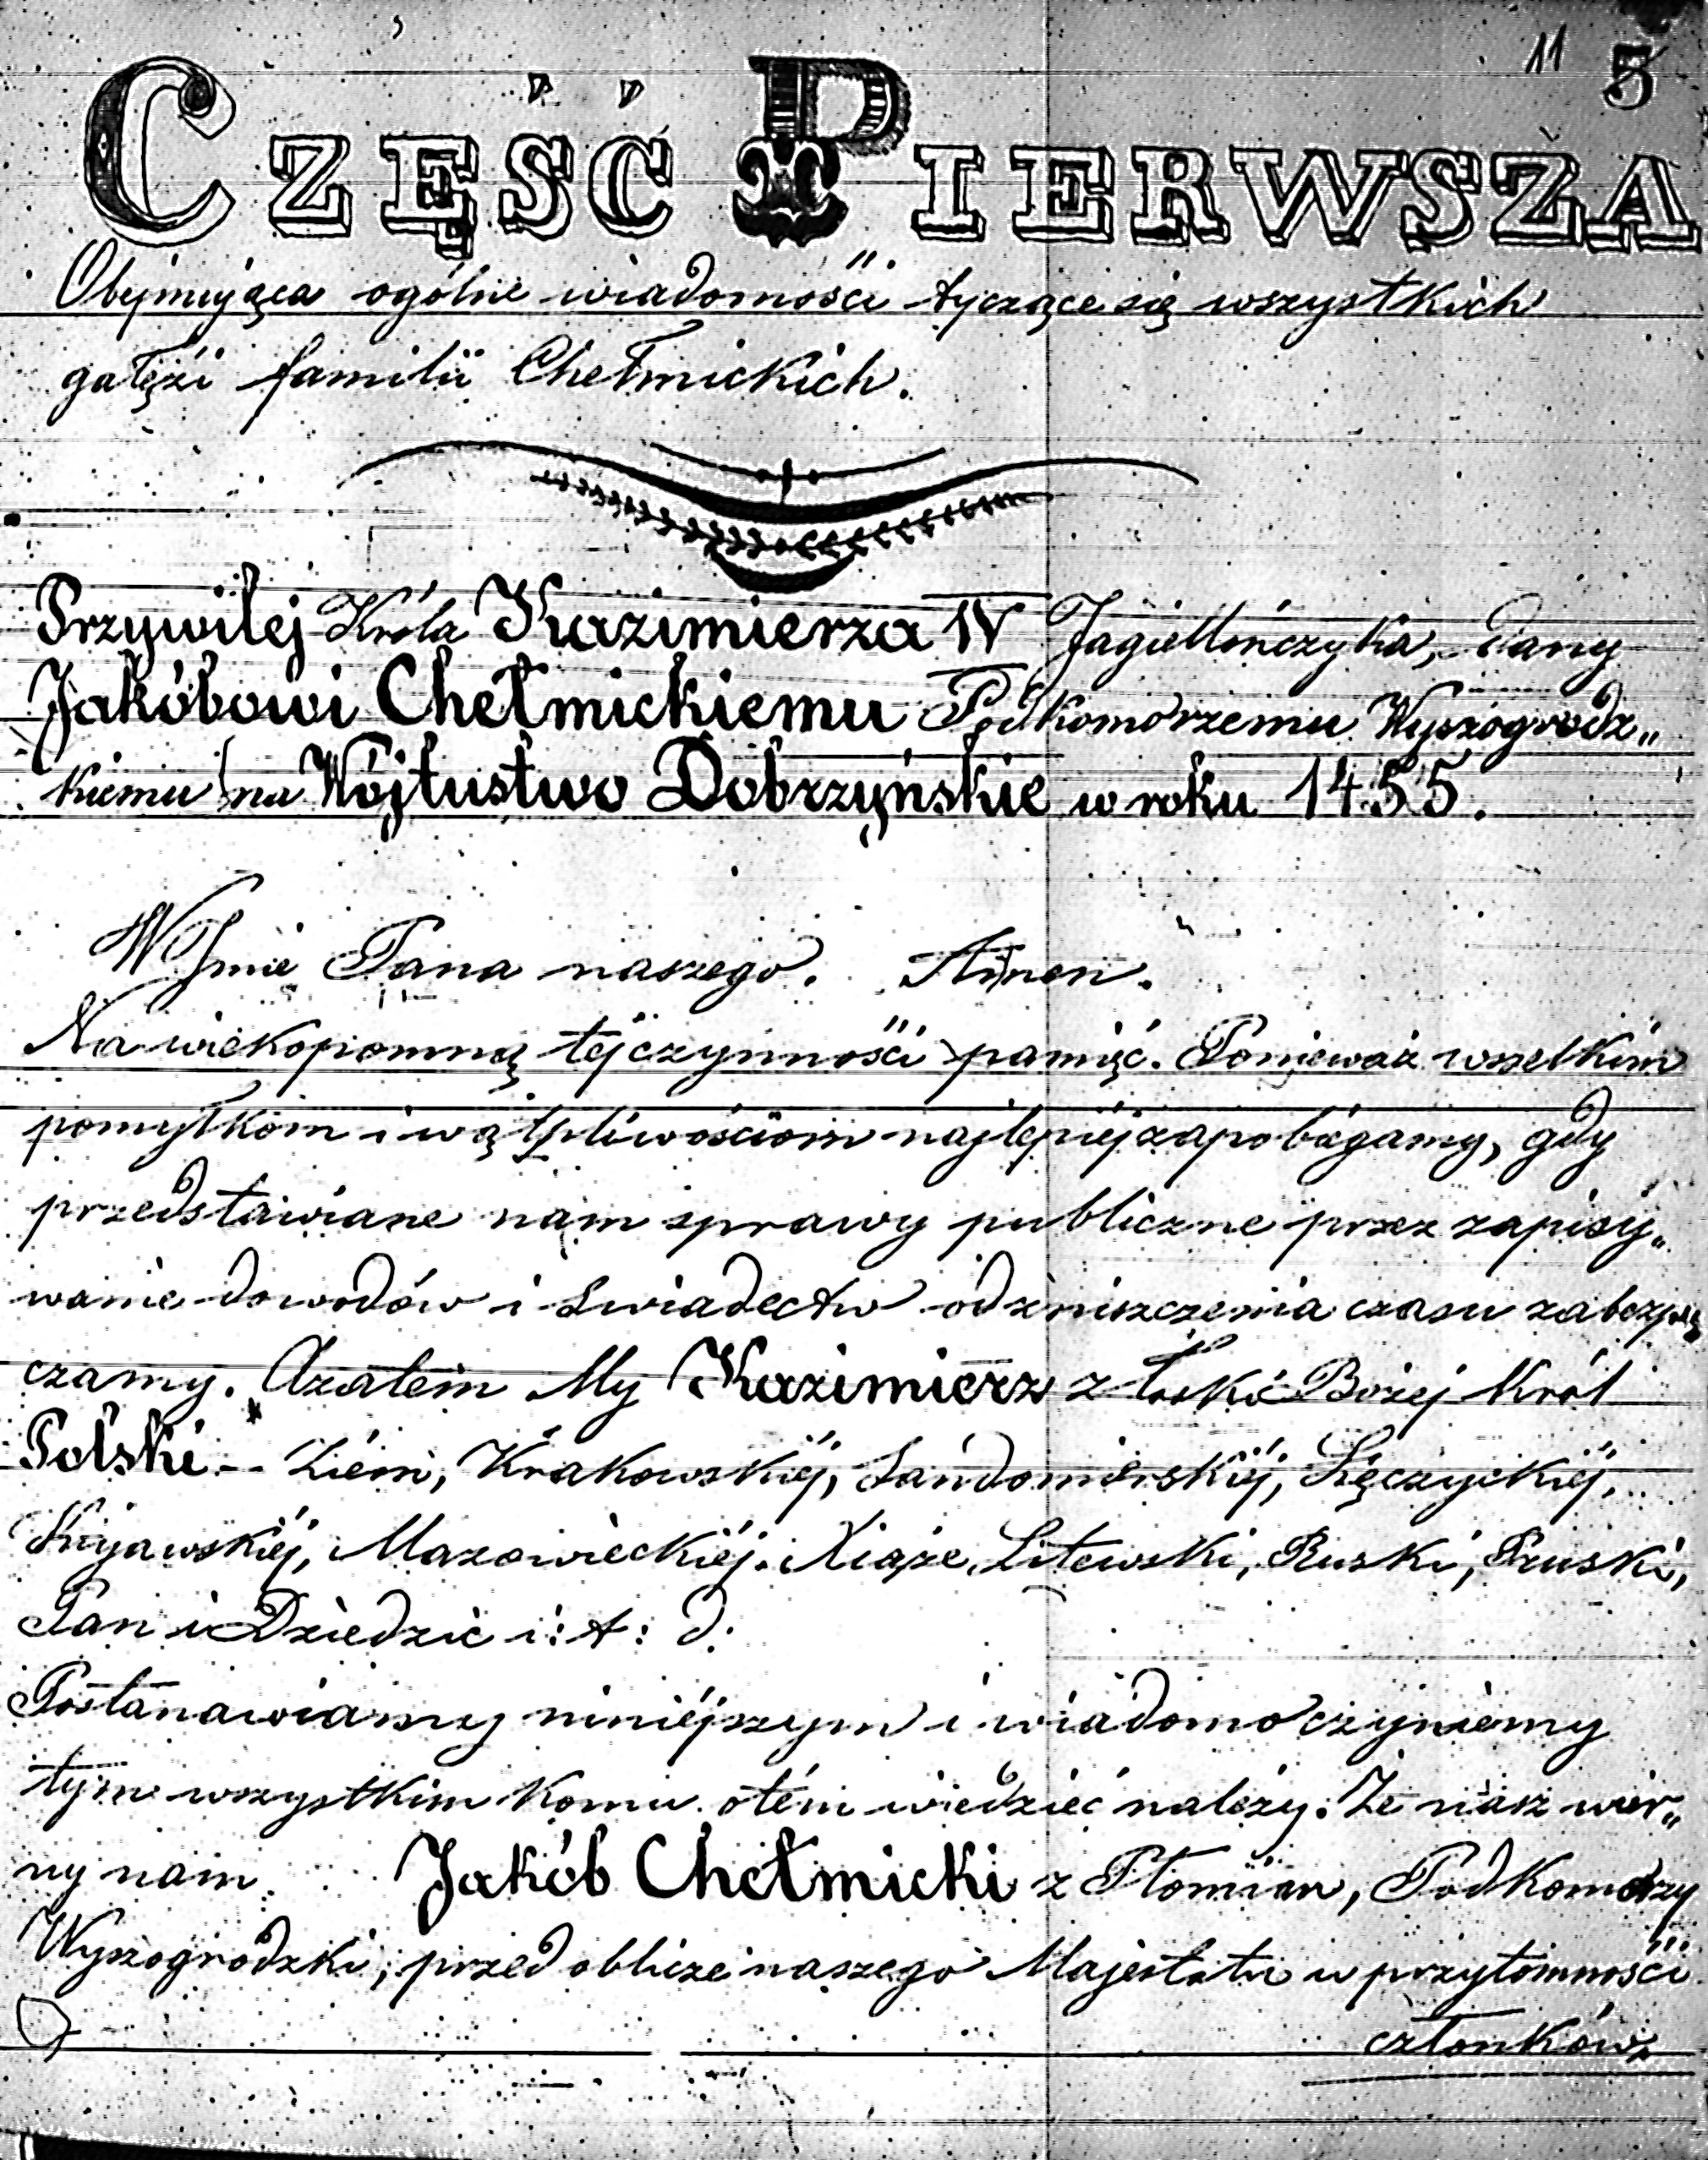 11 5
CZĘŚĆ PIERWSZA
Obejmująca ogólne wiadomości tyczące się wszystkich
gałęzi familii Chełmickich.
Przywilej Króla Kazimierza IV Jagiellończyka, dany
Jakóbowi Chełmickiemu Podkomorzemu Wyszogrodz„
kiemu na Wójtustwo Dobrzyńskie w roku 1455.
W Imie Pana naszego. Amen.
Na wiekopomną tej czynności pamięć. Ponieważ wszelkim
pomyłkom i wątpliwościom najlepiej zapobiegamy, gdy
przedstawiane nam sprawy publiczne przez zapisy„
wanie dowodów i świadectw od zniszczenia czasu zabezpie„
czamy. Azatem My Kazimierz z łaski Bożej Król
Polski – Ziem, Krakowskiéj, Sandomierskiéj, Łęczyckiéj,
Kujawskiéj, Mazowieckiéj. Xiąże Litewski, Ruski, Pruski,
Pan i Dziedzic i: t: d:
Postanawiamy niniéjszym i wiadomo czyniemy
tym wszystkim komu o tém wiedzieć należy: Że nasz wier„
ny nam Jakób Chełmicki z Płomian, Podkomorzy
Wyszogrodzki, przed oblicze naszego Majestatu w przytomności
członków